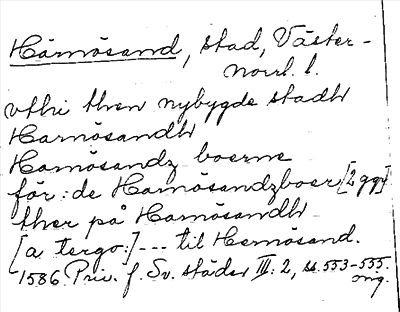 Härnösand, stad, Väster-
norrl. l.
vthi then nybygde stadh
Harnösandh
Hornösandz boerne
för: de Hornösandzboer [2 ggr]
ther på Hornösandh
[a tergo:] --- til Hernösand.
1586. Priv. f. Sv. städer III: 2, ss. 553-555.
orig.